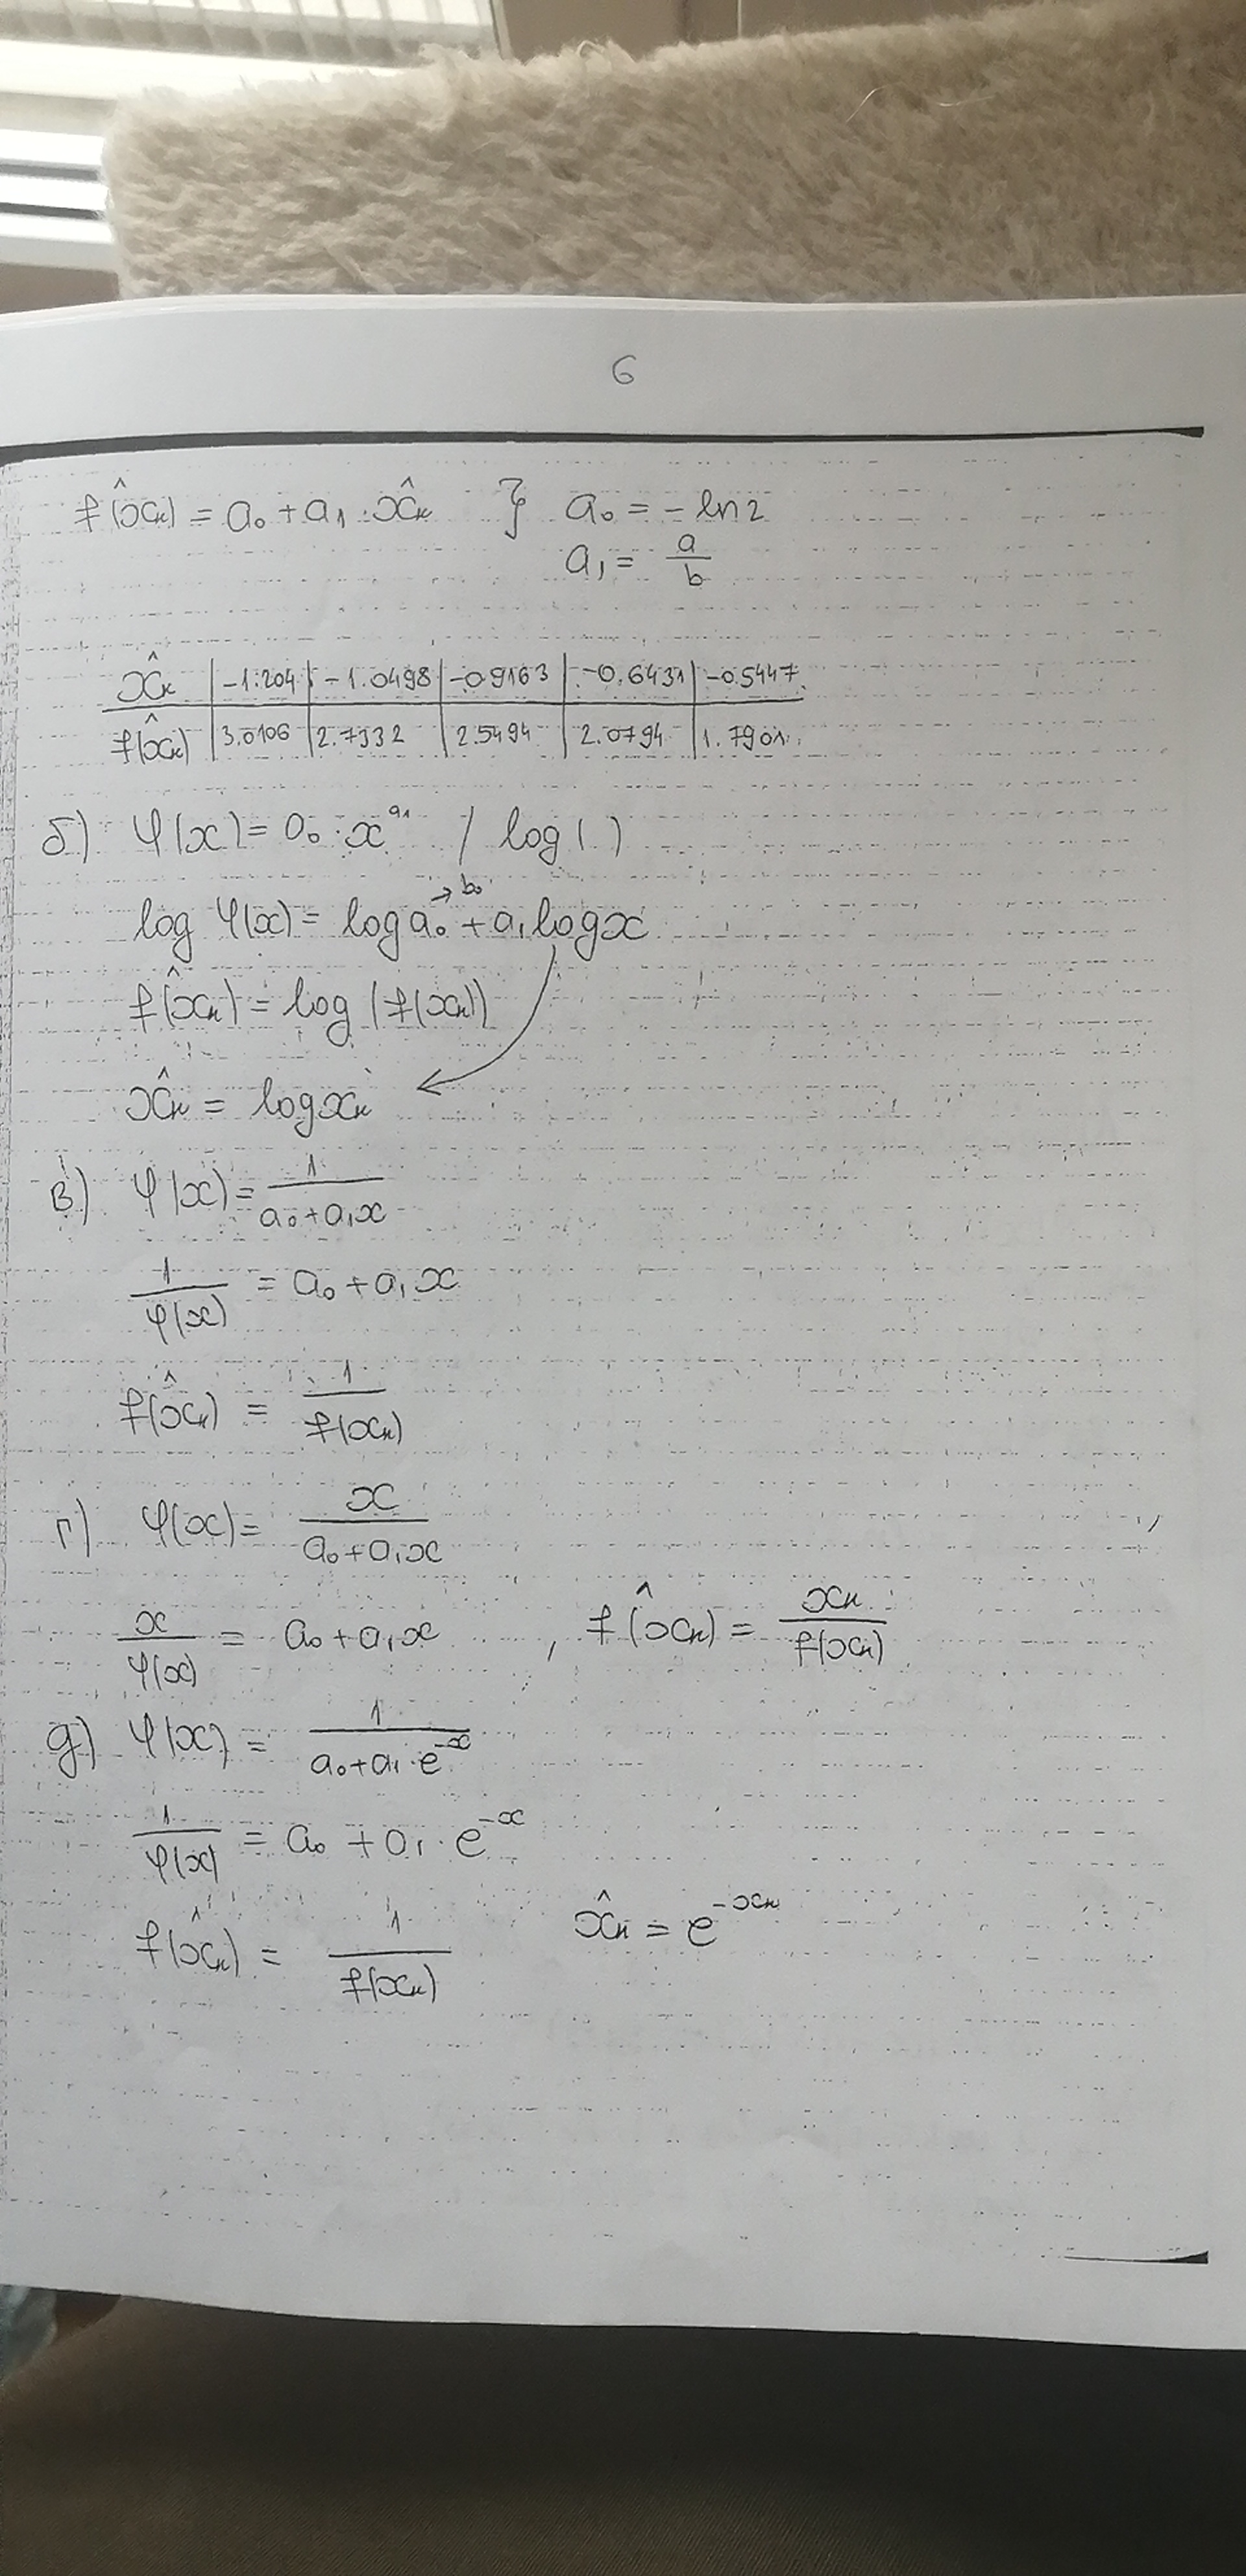 6
f(x̂ₖ) = a₀ + a₁·x̂ₖ } a₀ = -ln2
a₁ = a/b
x̂ₖ | -1.204 | -1.0498 | -0.9163 | -0.6431 | -0.5447
f(x̂ₖ) | 3.0106 | 2.7332 | 2.5494 | 2.0794 | 1.7901
б) φ(x) = a₀·x^a₁ / log( )
log φ(x) = log a₀ → b₀ + a₁ log x
f(x̂ₖ) = log(f(xₖ))
x̂ₖ = log xₖ
в) φ(x) = 1/(a₀+a₁x)
1/φ(x) = a₀ + a₁x
f(x̂ₖ) = 1/f(xₖ)
г) φ(x) = x/(a₀+a₁x)
x/φ(x) = a₀ + a₁x , f(x̂ₖ) = xₖ/f(xₖ)
д) φ(x) = 1/(a₀+a₁·e^-x)
1/φ(x) = a₀ + a₁·e^-x
f(x̂ₖ) = 1/f(xₖ) x̂ₖ = e^-xₖ